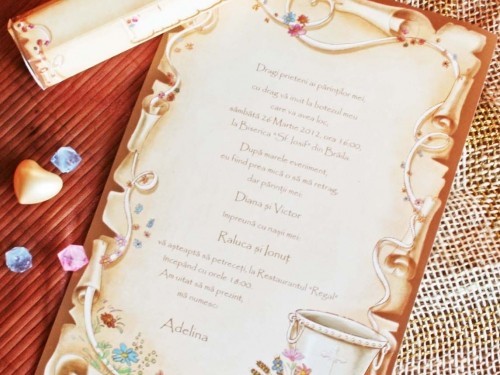 Dragi prieteni ai părinților mei,
cu drag vă invit la botezul meu
care va avea loc,
sâmbătă 26 Martie 2012, ora 16:00,
la Biserica "Sf. Iosif" din Brăila.
După marele eveniment,
eu fiind prea mică o să mă retrag,
dar părinții mei
Diana și Victor
împreună cu nașii mei
Raluca și Ionuț
vă așteaptă să petreceți, la Restaurantul "Regal"
începând cu orele 18:00.
Am uitat să mă prezint,
mă numesc
Adelina